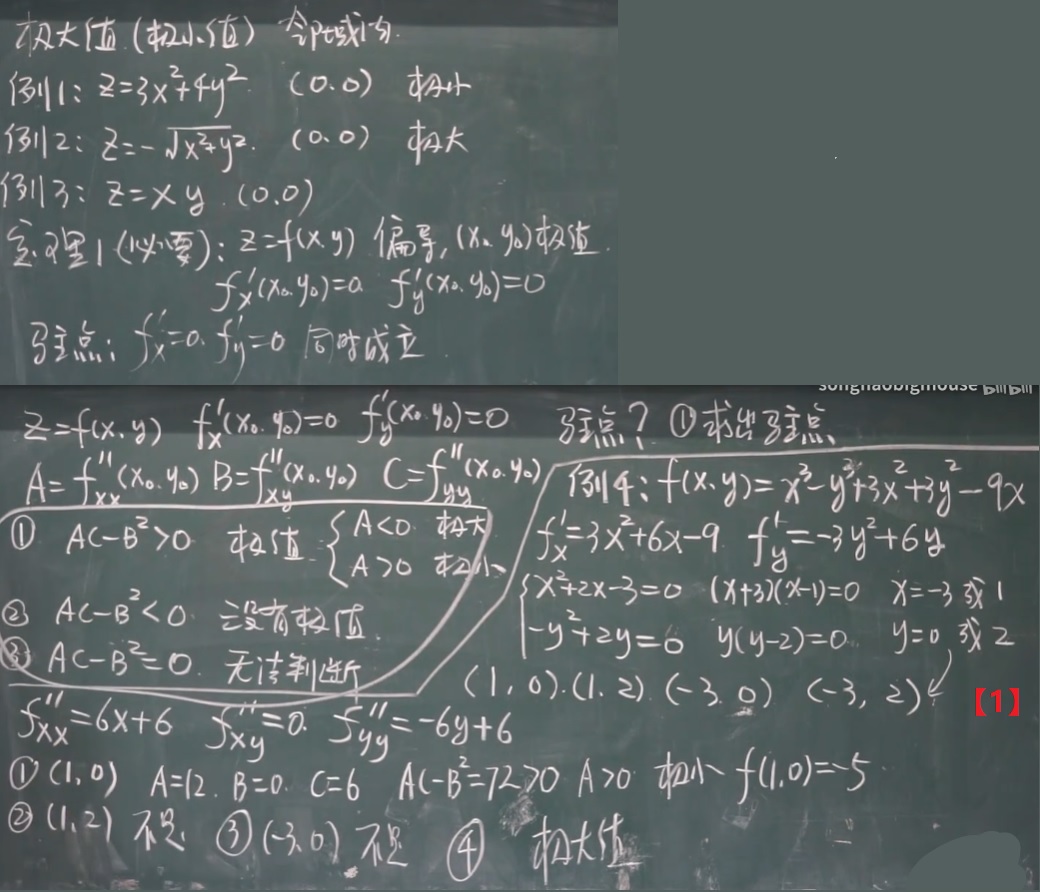 极大值(极小值) 邻域内.
例1: z=3x²+4y² (0.0) 极小
例2: z=-√(x²+y²). (0.0) 极大
例3: z=xy. (0.0)
定理1(必要): z=f(x.y) 偏导, (x₀ y₀)极值.
f'x(x₀.y₀)=0. f'y(x₀.y₀)=0
驻点: f'x=0. f'y=0 同时成立
songhaobigmouse bilibili
z=f(x.y) f'x(x₀.y₀)=0 f'y(x₀.y₀)=0 驻点? ①求出驻点
A=f''xx(x₀.y₀) B=f''xy(x₀.y₀) C=f''yy(x₀.y₀)
① AC-B²>0 极值 { A<0 极大
A>0 极小
② AC-B²<0. 没有极值.
③ AC-B²=0. 无法判断
例4: f(x.y)=x³-y³+3x²+3y²-9x
f'x=3x²+6x-9 f'y=-3y²+6y
{ x²+2x-3=0 (x+3)(x-1)=0 x=-3或1
-y²+2y=0 y(y-2)=0. y=0或2
(1,0).(1.2) (-3.0) (-3,2) 【1】
f''xx=6x+6 f''xy=0. f''yy=-6y+6
① (1,0) A=12. B=0. C=6 AC-B²=72>0 A>0 极小 f(1,0)=-5
② (1,2) 不是. ③ (-3,0) 不是 ④ 极大值